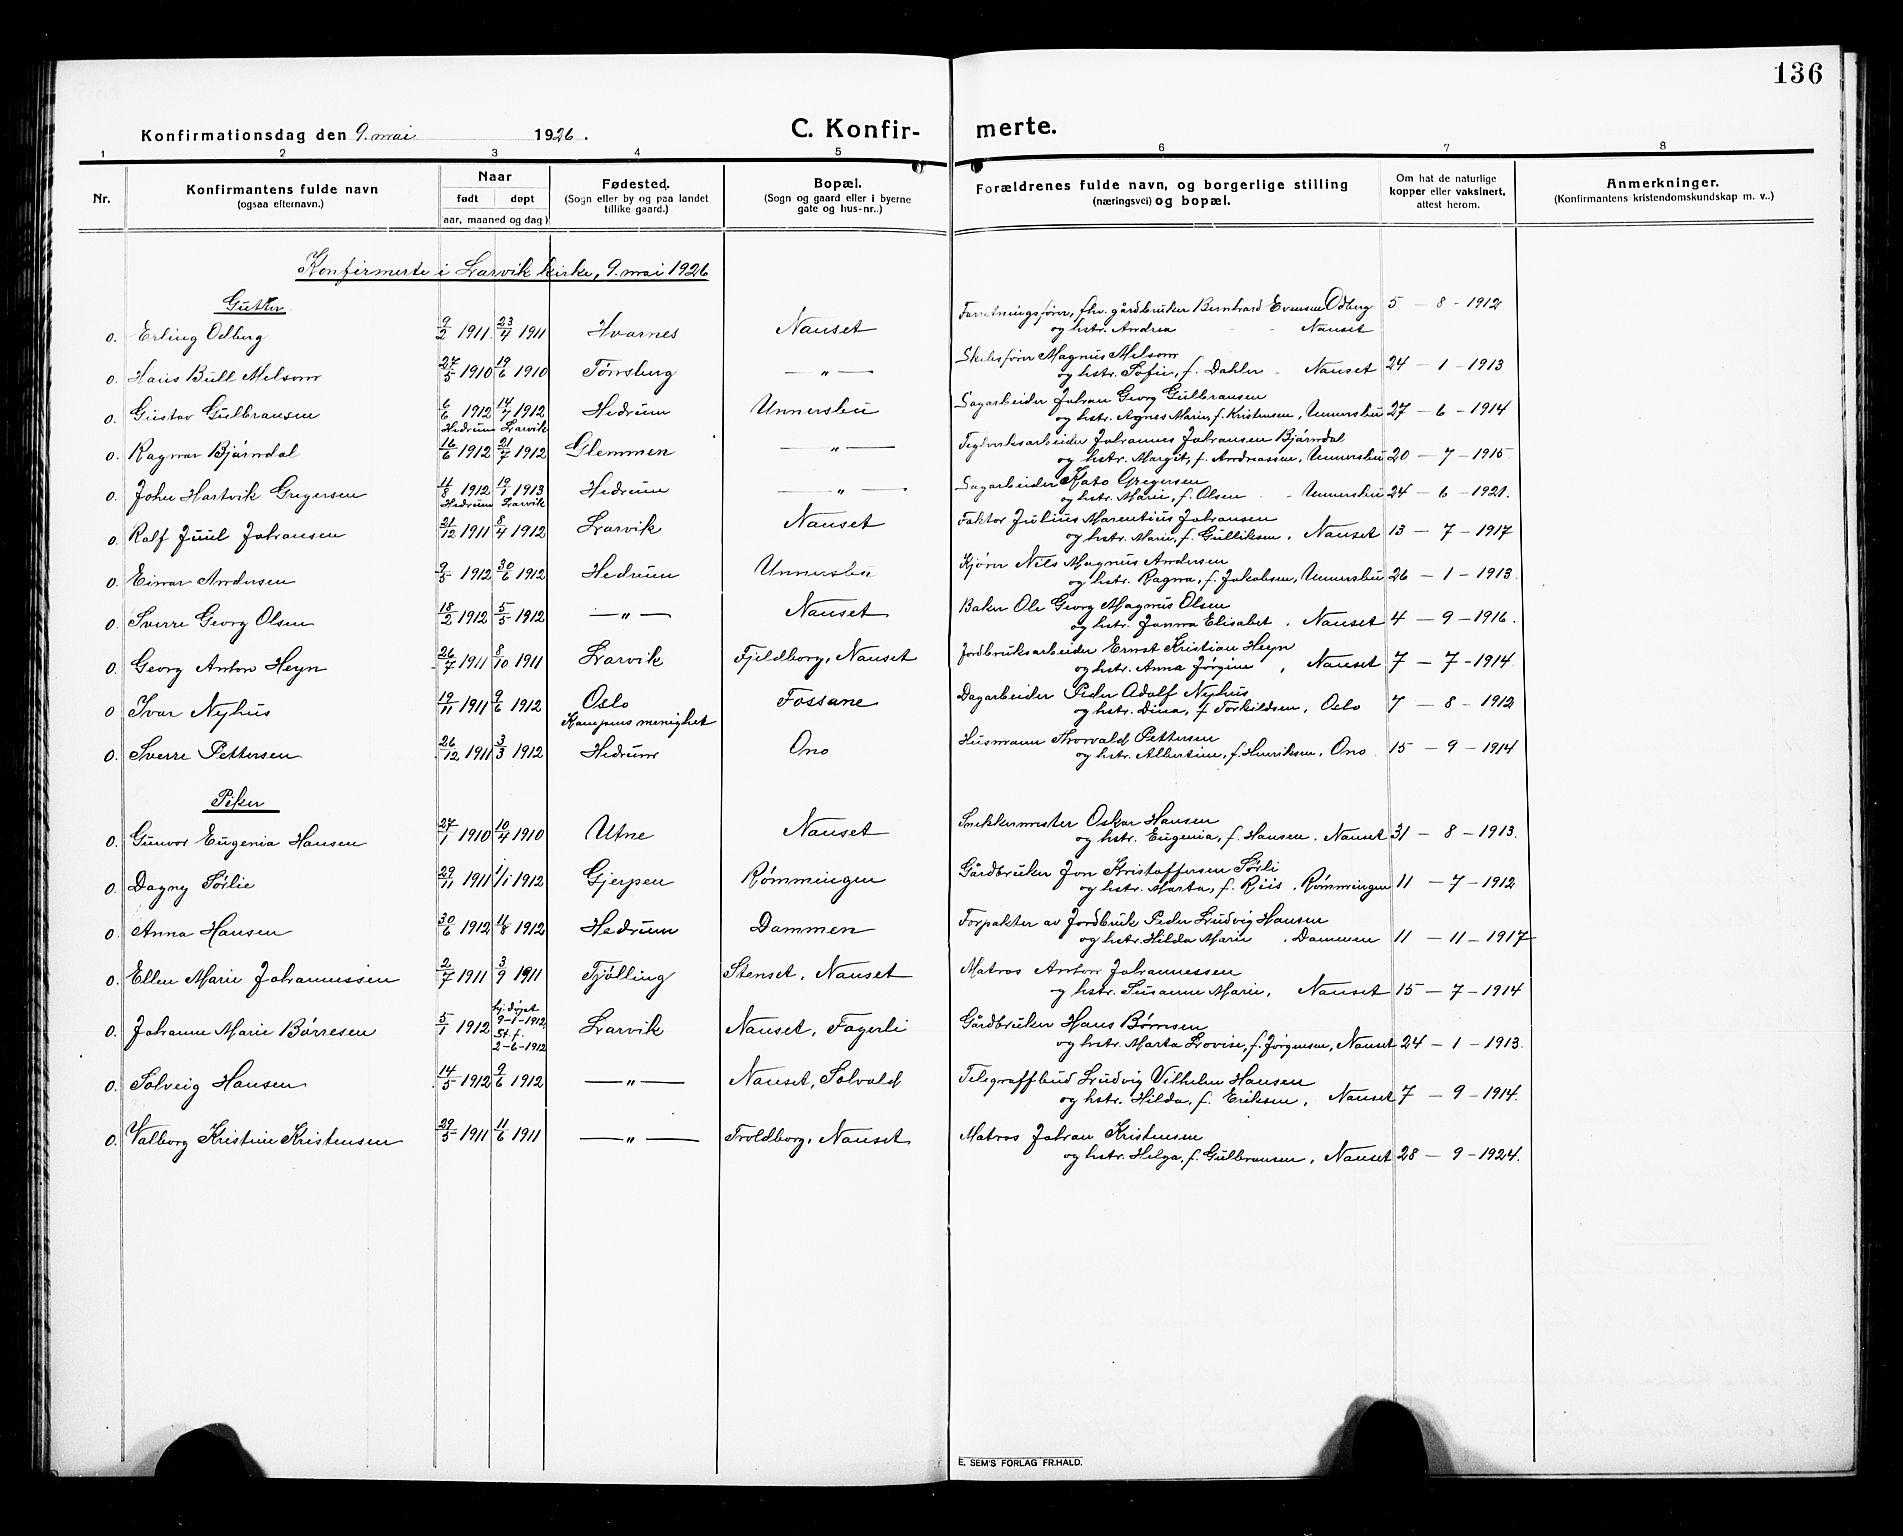 136
Konfirmationsdag den 9. mai 1926.
C. Konfir- merte.
1 2 3 4 5 6 7 8
Nr.
Konfirmantens fulde navn
(ogsaa efternavn.)
Naar
født døpt
aar, maaned og dag)
Fødested.
(Sogn eller by og paa landet
tillike gaard.)
Bopæl.
(Sogn og gaard eller i byerne
gate og hus-nr..)
Forældrenes fulde navn, og borgerlige stilling
(næringsvei) og bopæl.
Om hat de naturlige
kopper eller vaksinert,
attest herom.
Anmerkninger.
(Konfirmantens kristendomskundskap m. v..)
Konfirmerte i Larvik kirke, 9. mai 1926
Gutter
Forretningsfører, fhv. gårdbruker Bernhard Evensen Odberg 5 - 8 - 1912
o. Erling Odberg 9/2 1911 23/4 1911 Hvarnes Nanset og hstr. Andrea - - Nanset
Magnus Melsom
o. Hans Bull Melsom 27/5 1910 19/6 1910 Tønsberg — " — og hstr. Sofie, f. Dahler - Nanset 24 - 1 - 1913
Sagarbeider Johan Georg Gulbransen
o. Gustav Gulbransen 6/6 1912 14/7 1912 Hedrum Unnersbu og hstr. Agnes Marie, f. Kristensen, Unnersbu 27 - 6 - 1914
Hedrum Larvik
Teglverksarbeider Johannes Johansen Bjørndal
o. Ragnar Bjørndal 16/6 1912 21/7 1912 Glemmen — " — og hstr. Margit, f. Andreassen, Unnersbu 20 - 7 - 1915
Sagarbeider Kato Gregersen
o. John Hartvik Gregersen 11/8 1912 19/1 1913 Hedrum — " — og hstr. Marie, f. Olsen - - Unnersbu 24 - 6 - 1921.
Hedrum Larvik
Faktor Julius Marentius Johansen
o. Rolf Juul Johansen 21/12 1911 8/4 1912 Larvik Nanset og hstr. Marie, f. Gulliksen, Nanset 13 - 7 - 1917
Kjører Nils Magnus Andersen
o. Einar Andersen 9/5 1912 30/6 1912 Hedrum Unnersbu og hstr. Ragna, f. Jakobsen, Unnersbu 26 - 1 - 1913.
Baker Ole Georg Magnus Olsen
o. Sverre Georg Olsen 18/2 1912 5/5 1912 — " — Nanset og hstr. Janna Elisabet, Nanset 4 - 9 - 1916.
Jordbruksarbeider Ernst Kristian Heyn
o. Georg Anton Heyn 26/7 1911 8/10 1911 Larvik Fjeldborg, Nanset og hstr. Anna Jørgine, Nanset 7 - 7 - 1914.
Dagarbeider Peder Adolf Nyhus
o Ivar Nyhus 19/11 1911 9/6 1912 Oslo Fossane og hstr. Dina, f. Torkildsen, Oslo 7 - 8 - 1912
Kampens menighet
Husmann Thorvald Pettersen
o. Sverre Pettersen 26/12 1911 3/3 1912 Hedrum Ono og hstr. Albertine, f. Henriksen, Ono. 15 - 9 - 1914
Piker
Snekkermester Oskar Hansen
o. Gunvor Eugenia Hansen 27/1 1910 10/4 1910 Utne Nanset og hstr. Eugenia, f. Hansen. Nanset 31 - 8 - 1913.
Gårdbruker Jon Kristoffersen Sørli
o. Dagny Sørlie 29/11 1911 1/1 1912 Gjerpen Rømmingen og hstr. Marta, f. Riis. Rømmingen 11 - 7 - 1912
Forpakter av Jordbruk Peder Ludvig Hansen
o. Anna Hansen 30/6 1912 11/8 1912 Hedrum Dammen og hstr. Hilda Marie. Dammen 11 - 11 - 1917
Matros Anton Johannessen
o. Ellen Marie Johannessen 2/7 1911 3/9 1911 Tjølling Stenset, Nanset og hstr. Susanne Marie, Nanset 15 - 7 - 1914
hj. døpt
9-1-1912.
St. f.
2-6-1912
Gårdbruker Hans Børresen
o. Johanne Marie Børresen 5/1 1912 Larvik Nanset, Fagerli og hstr. Marta Lovise, f. Jørgensen, Nanset 24 - 1 - 1913.
Telegrafbud Ludvig Vilhelm Hansen
o. Solveig Hansen 14/5 1912 9/6 1912 — " — Nanset, Solvald og hstr. Hilda, f. Eriksen, Nanset 7 - 9 - 1914.
Matros Johan Kristensen
o. Valborg Kristine Kristensen 29/5 1911 11/6 1911 — " — Troldborg, Nanset og hstr. Helga, f. Gulbransen, Nanset 28 - 9 - 1924.
E. SEM'S FORLAG FR.HALD.